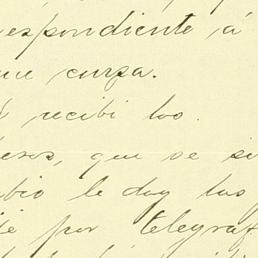 espondiente á
ue cursa.
recibi los
esos, que se si
bio le doy las
é por telegraf